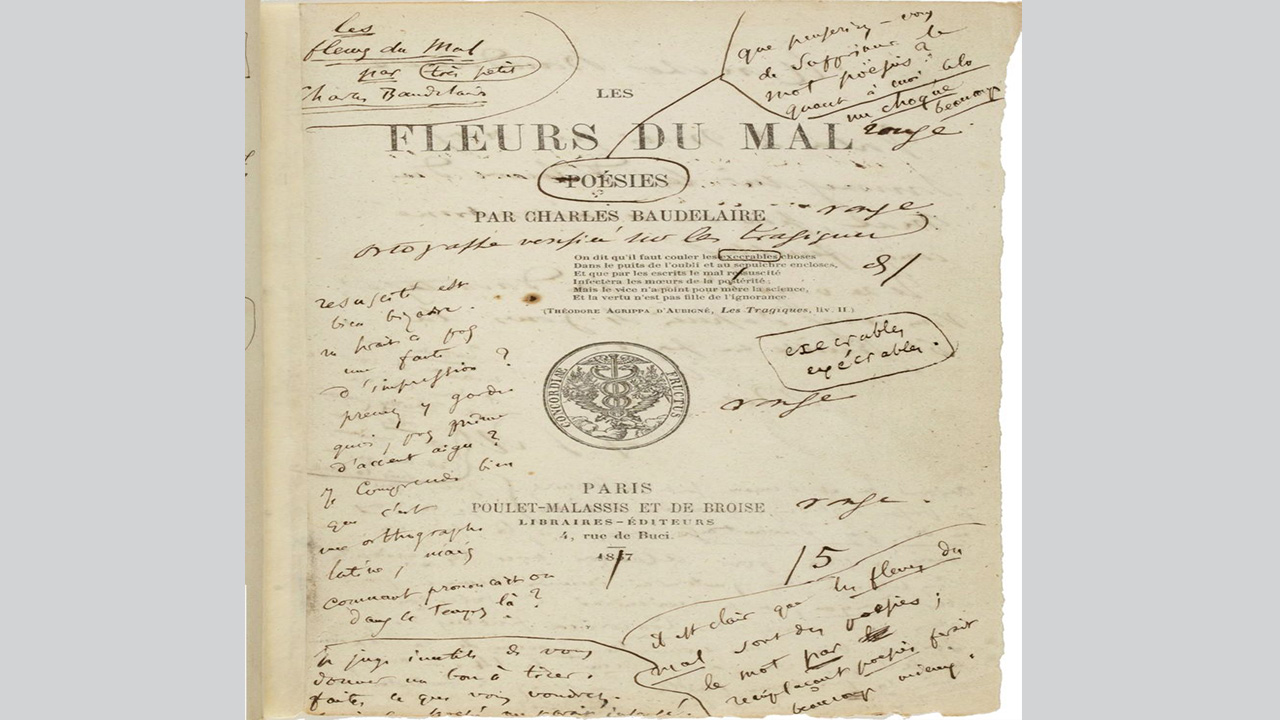 les
fleurs du Mal
par très petit
Charles Baudelaire
que penseriez-vous
de supprimer le
mot poësies?
quant à moi cela
me choque
beaucoup
LES
FLEURS DU MAL
rouge.
POÉSIES
PAR CHARLES BAUDELAIRE
rouge
sur les tragiques
On dit qu'il faut couler les execrables choses
Dans le puits de l'oubli et au sepulchre encloses,
Et que par les escrits le mal resuscité
Infectera les mœurs de la postérité;
Mais le vice n'a point pour mère la science,
Et la vertu n'est pas fille de l'ignorance.
(THÉODORE AGRIPPA D'AUBIGNÉ, Les Tragiques, liv. II.)
resuscité est
bien bizarre.
une faute
d'impression?
prenez y garde
quoi, pas même
d'accent aigu?
je comprends bien
que c'est
une orthographe
latine, mais
comment prononçait-on
dans ce temps là?
execrables
exécrables.
CONCORDIÆ FRUCTUS
rouge
PARIS
POULET-MALASSIS ET DE BROISE
rouge.
LIBRAIRES-ÉDITEURS
4, rue de Buci.
1857
/5
il est clair que les fleurs du
mal sont des poësies;
le mot par
remplaçant poësies ferait
beaucoup mieux.
Je juge inutile de vous
donner un bon à tirer.
faites ce que vous voudrez.